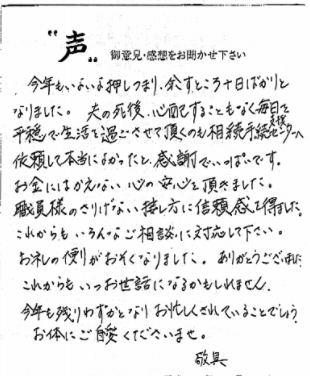 "声" 御意見・感想をお聞かせ下さい
今年もいよいよ押しつまり、余すところ十日ばかりと
なりました。夫の死後、心配することもなく毎日を
平穏で生活を過ごさせて頂くのも相続手続支援センターへ
依頼して本当によかったと、感謝でいっぱいです。
お金にはかえない心の安心を頂きました。
職員様のさりげない接し方に信頼感を得ました。
これからもいろんなご相談に対応して下さい。
お礼の便りがおそくなりました。ありがとうございました
これからもいつお世話になるかもしれません。
今年も残りわずかとなりお忙しくされていることでしょう。
お体にご自愛くださいませ。
敬具